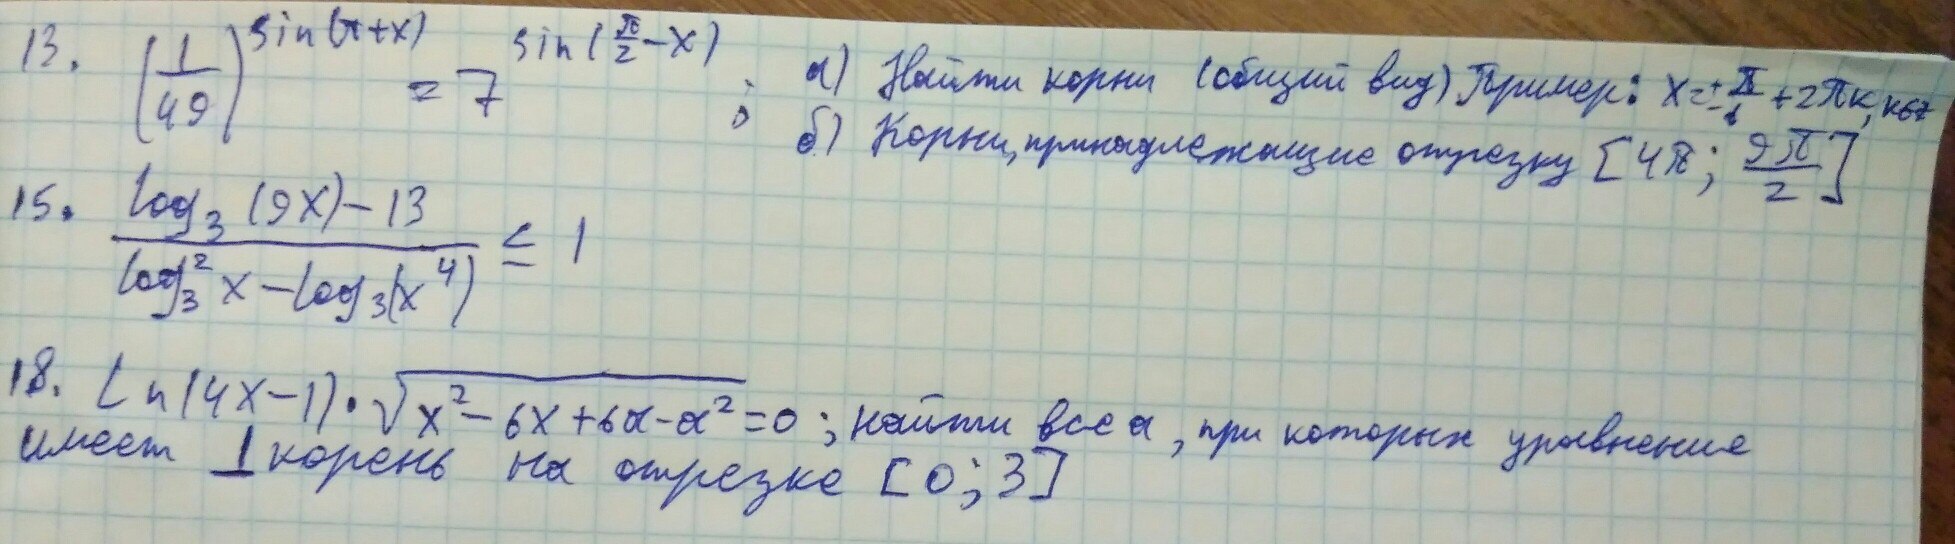 13. (1/49)^sin(π+x) = 7^sin(π/2 - x) ; а) Найти корни (общий вид) Пример: x=± π/6 +2πк, к∈Z
б) Корни, принадлежащие отрезку [4π; 9π/2]
15. (log₃(9x) - 13)/(log₃² x - log₃(x⁴)) ≤ 1
18. ln(4x-1)·√(x²-6x+6a-a²)=0 ; найти все a, при которых уравнение
имеет 1 корень на отрезке [0;3]